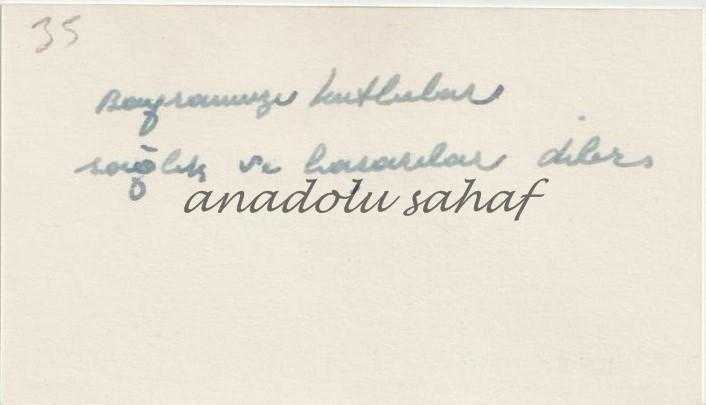 35
Bayramınızı kutlular
sağlık ve başarılar diler.
anadolu sahaf